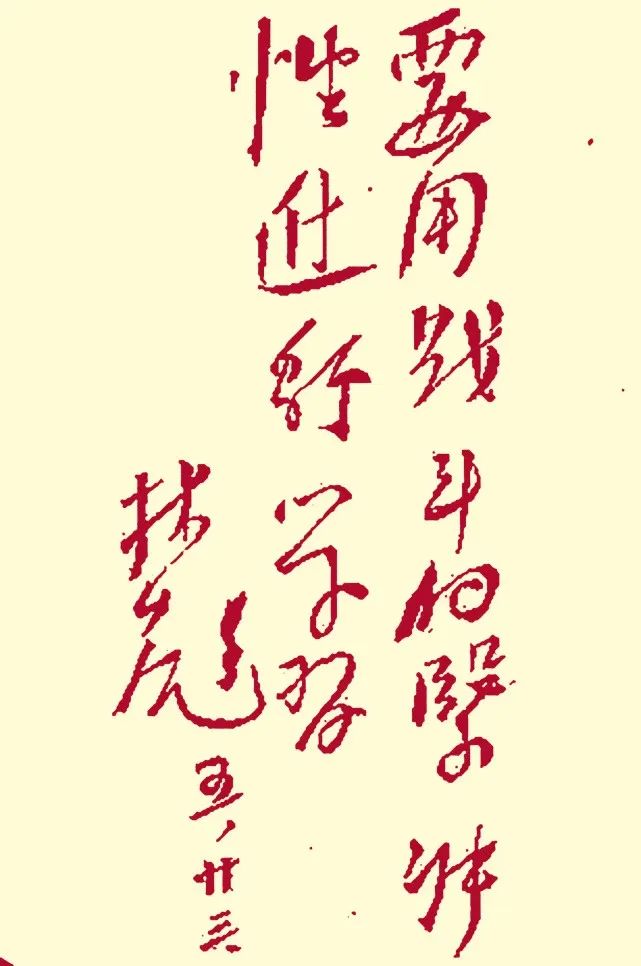 要用战斗的紧张
性进行学習
林彪
五、廿三